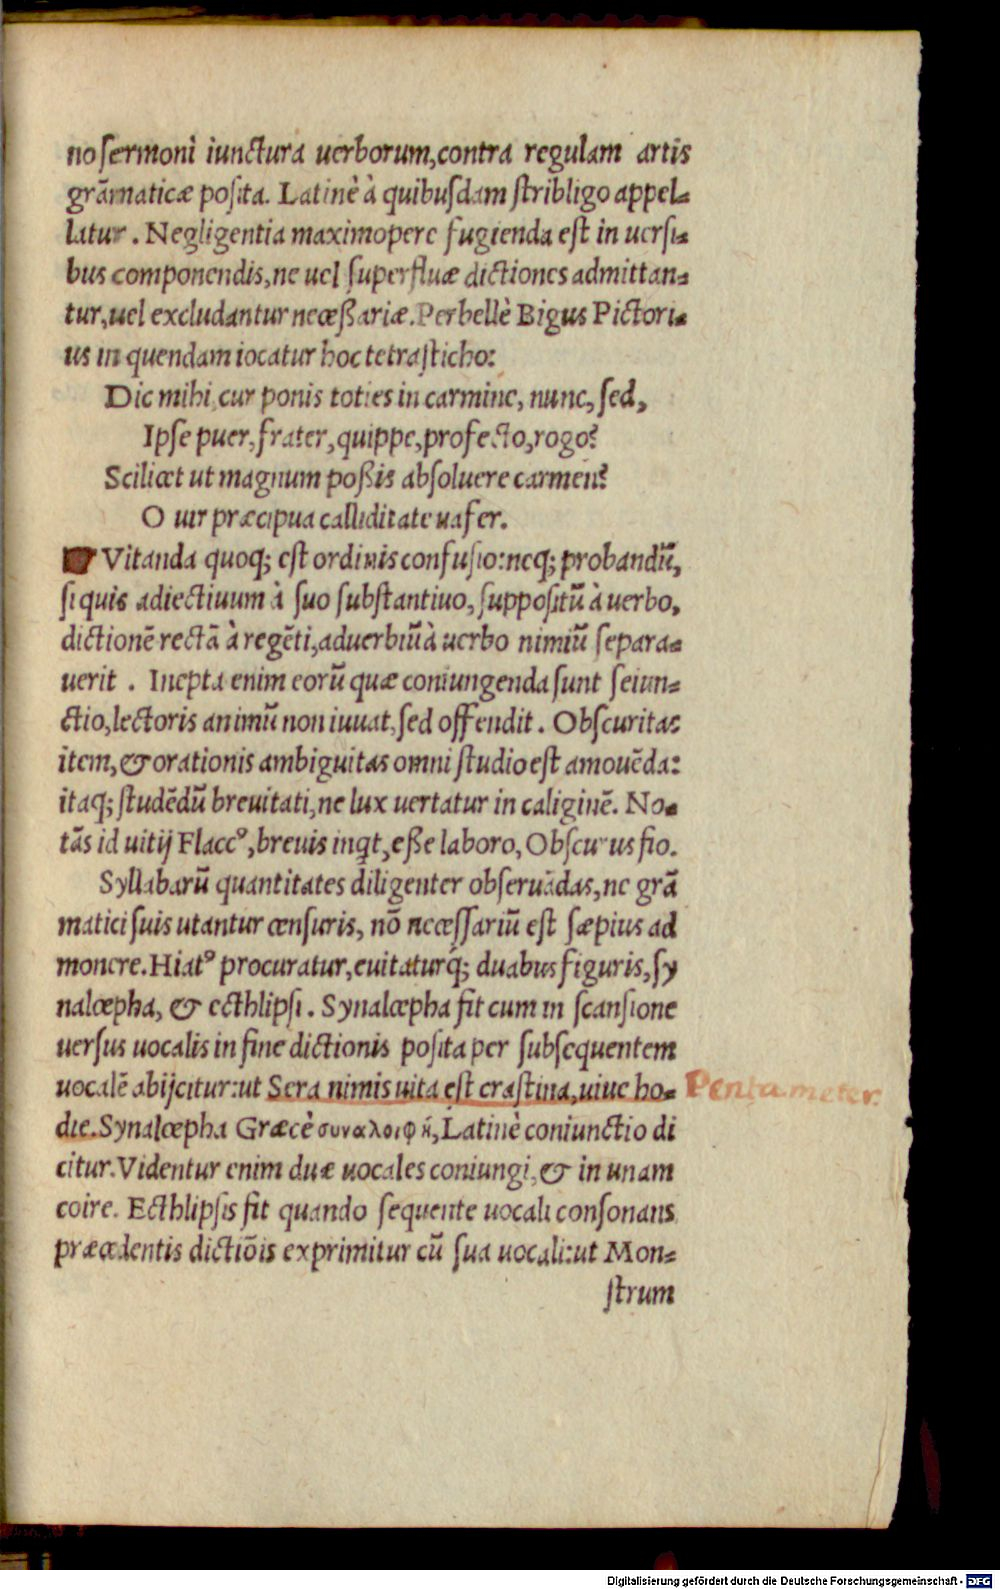 no sermoni iunctura uerborum, contra regulam artis
grãmaticæ posita. Latinè à quibusdam stribligo appel-
latur. Negligentia maximopere fugienda est in uersi-
bus componendis, ne uel superfluæ dictiones admittan-
tur, uel excludantur necessariæ. Perbellè Bigus Pictori-
us in quendam iocatur hoc tetrasticho:
Dic mihi, cur ponis toties in carmine, nunc, sed,
Ipse puer, frater, quippe, profecto, rogo?
Scilicet ut magnum possis absoluere carmen?
O uir præcipua calliditate uafer.
Vitanda quoq; est ordinis confusio: neq; probandũ,
si quis adiectiuum à suo substantiuo, suppositũ à uerbo,
dictionẽ rectã à regẽti, aduerbiũ à uerbo nimiũ separa-
uerit. Inepta enim eorũ quæ coniungenda sunt seiun-
ctio, lectoris animũ non iuuat, sed offendit. Obscuritas
item, & orationis ambiguitas omni studio est amouẽda:
itaq; studẽdũ breuitati, ne lux uertatur in caliginẽ. No-
tãs id uitij Flaccꝰ, breuis inqt, esse laboro, Obscurus fio.
Syllabarũ quantitates diligenter obseruãdas, ne grã
matici suis utantur censuris, nõ necessariũ est sæpius ad
monere. Hiatꝰ procuratur, euitaturq́; duabus figuris, sy
nalœpha, & ecthlipsi. Synalœpha fit cum in scansione
uersus uocalis in fine dictionis posita per subsequentem
uocalẽ abijcitur: ut Sera nimis uita est crastina, uiue ho-
die. Synalœpha Græcè συναλοιφὴ, Latinè coniunctio di
citur. Videntur enim duæ uocales coniungi, & in unam
coire. Ecthlipsis fit quando sequente uocali consonans
præcedentis dictiõis exprimitur cũ sua uocali: ut Mon-
strum
Pentameter.
Digitalisierung gefördert durch die Deutsche Forschungsgemeinschaft - DFG